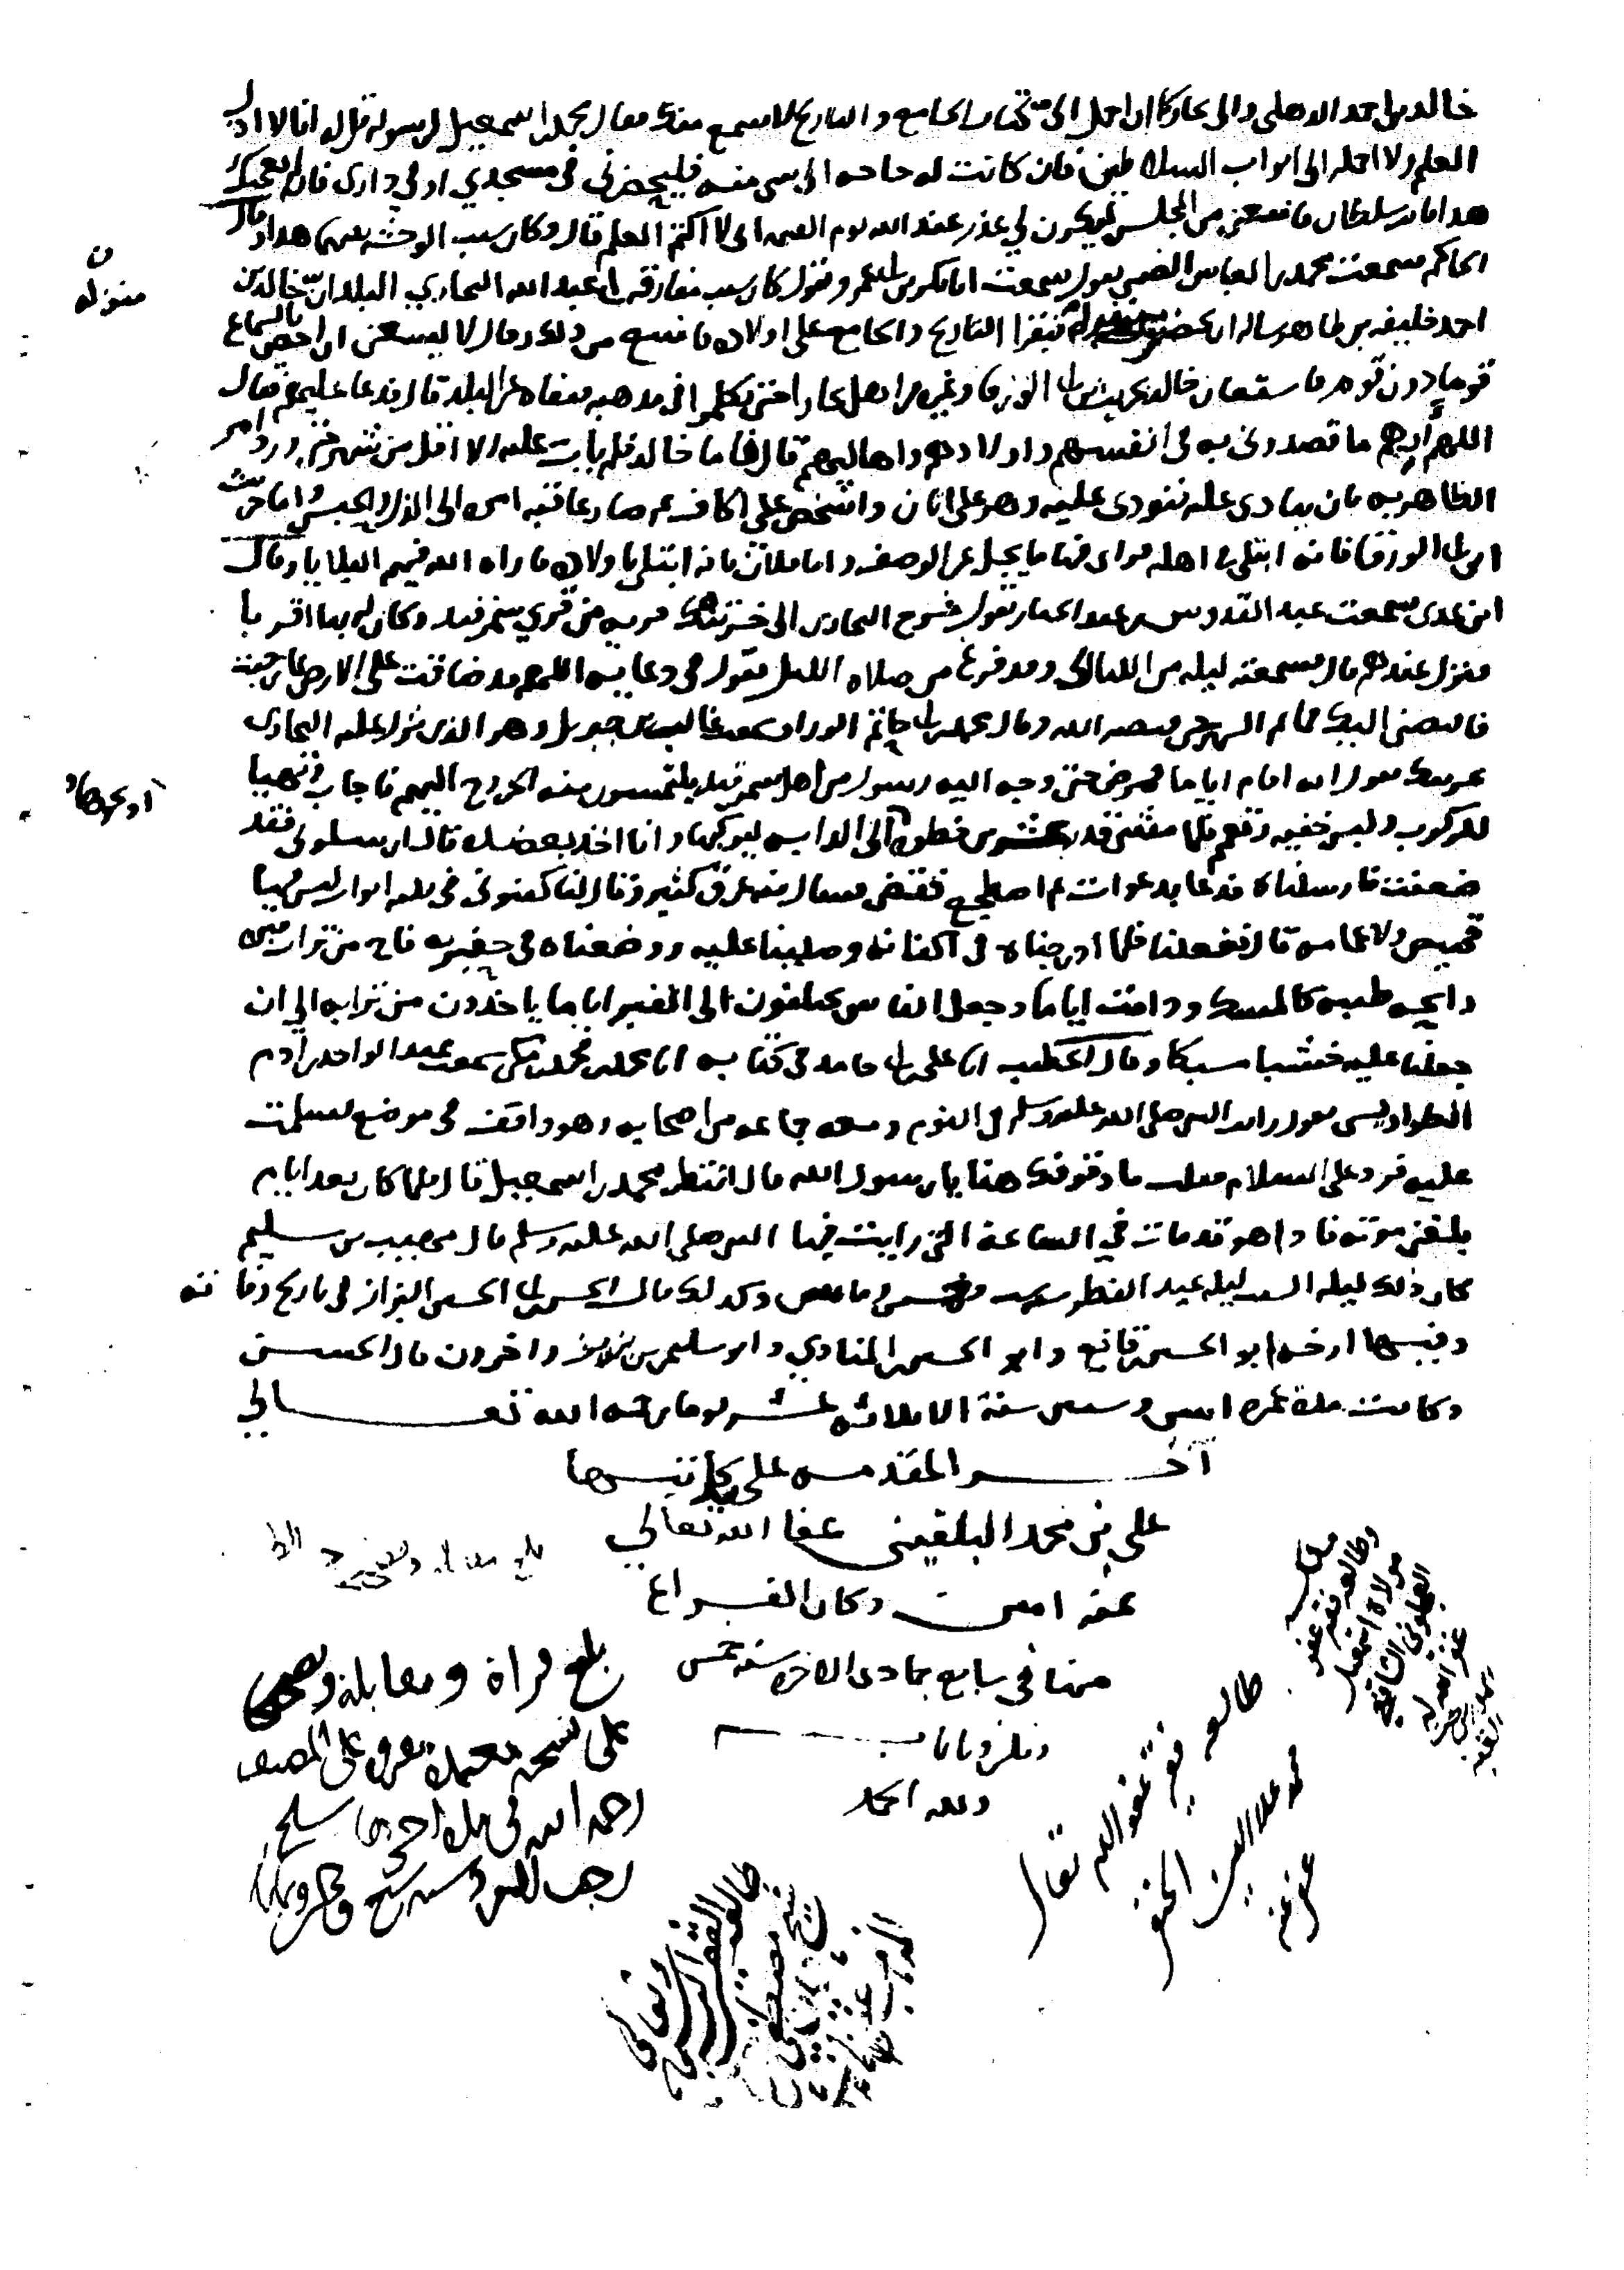 خالد بن احمد الذهلي والى بخارى ان احمل الي كتاب الجامع والتاريخ لاسمع منك فقال محمد بن اسمعيل لرسوله قل له انا لا اذل
العلم ولا احمله الى ابواب السلاطين فان كانت له حاجه الى شي منه فليحضرني في مسجدي او في داري فان لم يعجبك
هذا فانت سلطان فامنعني من المجلس ليكون لي عذر عند الله يوم القيمه اني لا اكتم العلم قال وكان سبب الوحشه بينهما هذا وقال
الحاكم سمعت محمد بن العباس الضبي يقول سمعت ابا بكر بن ابي عمرو يقول كان سبب مفارقه ابي عبد الله البخاري البلد ان خالد بن
احمد خليفه بن طاهر ساله ان يحضر منزله فيقرا التاريخ والجامع على اولاده فامتنع من ذلك وقال لا يسعني ان اخص بالسماع
قوما دون قوم فاستعان خالد بحريث بن ابي الورقا وغيره من اهل بخارا حتى تكلموا في مذهبه فنفاه عن البلد قال فدعا عليهم فقال
اللهم ارهم ما قصدوني به في انفسهم واولادهم واهاليهم قال فاما خالد فلم يات عليه الا اقل من شهر حتى ورد امر
الظاهريه بان ينادى عليه فنودى عليه وهو على اتان واشخص على اكاف ثم صار عاقبه امره الى الذل والحبس واما حريث
ابن ابي الورقا فانه ابتلي في اهله فراى فيها ما يجل عن الوصف واما فلان فانه ابتلي باولاده فاراه الله فيهم البلايا وقال
ابن عدى سمعت عبد القدوس بن عبد الجبار يقول خرج البخارى الى خرتنك قريه من قري سمرقند وكان له بها اقربا
فنزل عندهم قال فسمعته ليله من الليالى وقد فرغ من صلاه الليل يقول في دعايه اللهم قد ضاقت على الارض بما رحبت
فاقبضني اليك فما تم الشهر حتى قبضه الله وقال محمد بن ابي حاتم الوراق سمعت غالب بن جبريل وهو الذى نزل عليه البخارى
بخرتنك يقول انه اقام اياما فمرض حتى وجه اليه رسول من اهل سمرقند يلتمسون منه الخروج اليهم فاجاب وتهيا
للركوب ولبس خفيه وتعمم فلما مشى قدر عشرين خطوه الى الدابه ليركبها وانا اخذ بعضده قال ارسلوني فقد
ضعفت فارسلناه فدعا بدعوات ثم اضطجع فقضى فسال منه عرق كثير وقال لنا كفنوني في ثلثه اثواب ليس فيها
قميص ولا عمامه قال ففعلنا فلما ادرجناه في اكفانه وصلينا عليه ووضعناه في حفرته فاح من تراب قبره
رايحه طيبه كالمسك ودامت اياما وجعل الناس يختلفون الى القبر اياما ياخذون من ترابه الى ان
جعلنا عليه خشبا مشبكا وقال الخطيب انا علي بن ابي حامد في كتابه انا محمد بن محمد بن مكي سمعت عبد الواحد بن ادم
الطواويسي يقول رايت النبي صلى الله عليه وسلم في النوم ومعه جماعه من اصحابه وهو واقف في موضع فسلمت
عليه فرد علي السلام فقلت ما وقوفك هنا يا رسول الله قال انتظر محمد بن اسمعيل قال فلما كان بعد ايام
بلغني موته فاذا هو قد مات في الساعة التى رايت فيها النبي صلى الله عليه وسلم قال مهيب بن سليم
كان ذلك ليله السبت ليله عيد الفطر سنه ست وخمسين وماتين وكذلك قال الحسن بن الحسين البزاز في تاريخ وفاته
وفيها ارخه ابو الحسين بن قانع وابو الحسين بن المنادي وابو سليمن بن زبر واخرون قال الحسن
وكانت مدة عمره اثنين وستين سنة الا ثلاثه عشر يوما رحمه الله تعالي
آخر المقدمه على يد كاتبها
علي بن محمد البلقيني عفا الله تعالي
عنه امين وكان الفراغ
منها في سابع جمادى الاخره سنه خمس
وثمانمايه
ولله الحمد
منزله ن
بلغ قراة ومقابلة وتصحيحا
على نسخه معتمده مقروه على المصنف
رحمه الله في مده اخرها سلخ
رجب الفرد سنه
طالعه فقير عفو الله تعالى
عفي عنه